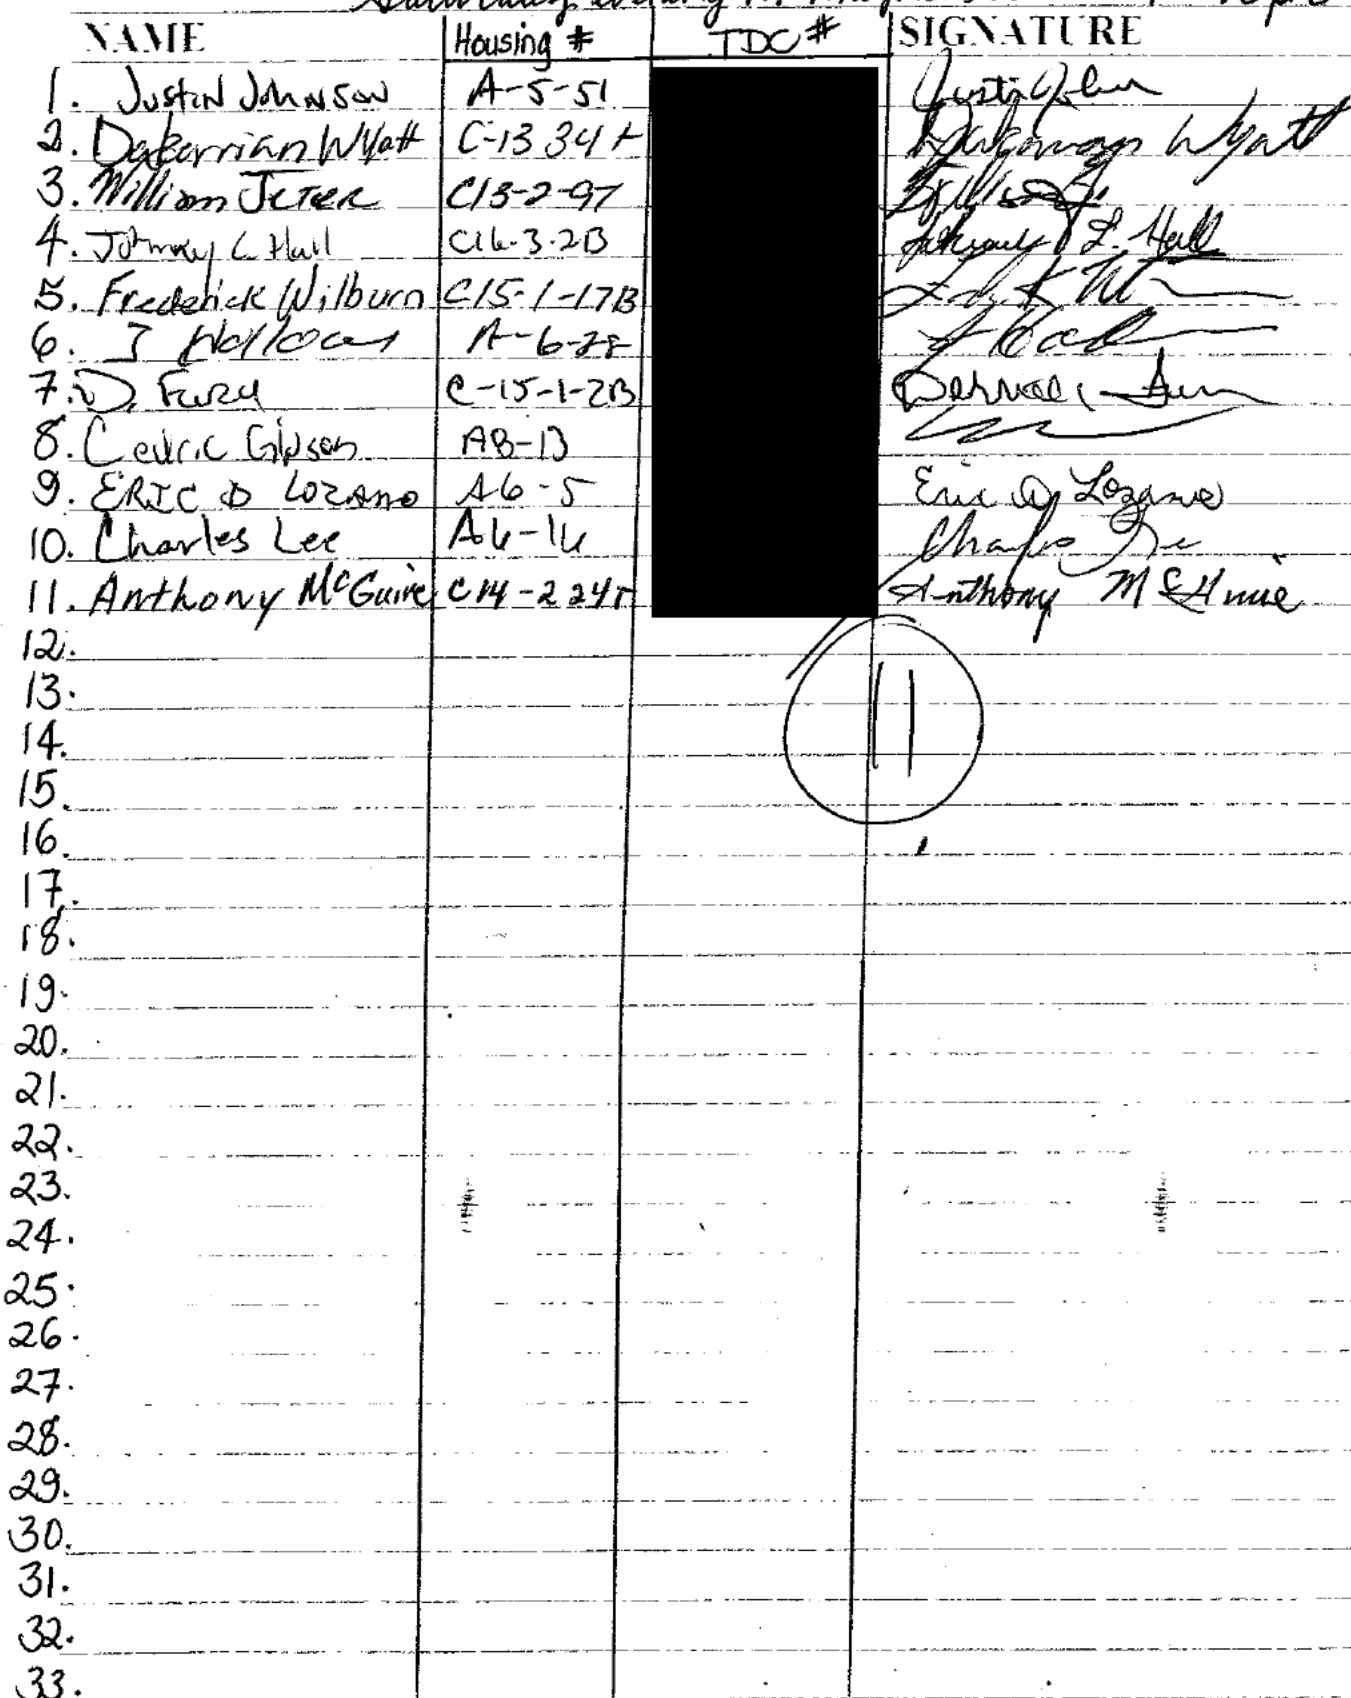 Saturday evening
NAME Housing # TDC # SIGNATURE
1. Justin Johnson A-5-51
2. Dakarrian Wyatt C-13 34 t Dakarrian Wyatt
3. William Jeter C13-2-97
4. Johnny L Hall C16-3-2B Johnny L. Hall
5. Frederick Wilburn C15-1-17B
6. J A-6-28
7. D. Fury C-15-1-2B
8. Cedric Gipson A8-13
9. ERIC D LOZANO A6-5 Eric D Lozano
10. Charles Lee A6-16 Charles Lee
11. Anthony McGuire C14-2 24T Anthony McGuire
12.
11
13.
14.
15.
16.
17.
18.
19.
20.
21.
22.
23.
24.
25.
26.
27.
28.
29.
30.
31.
32.
33.